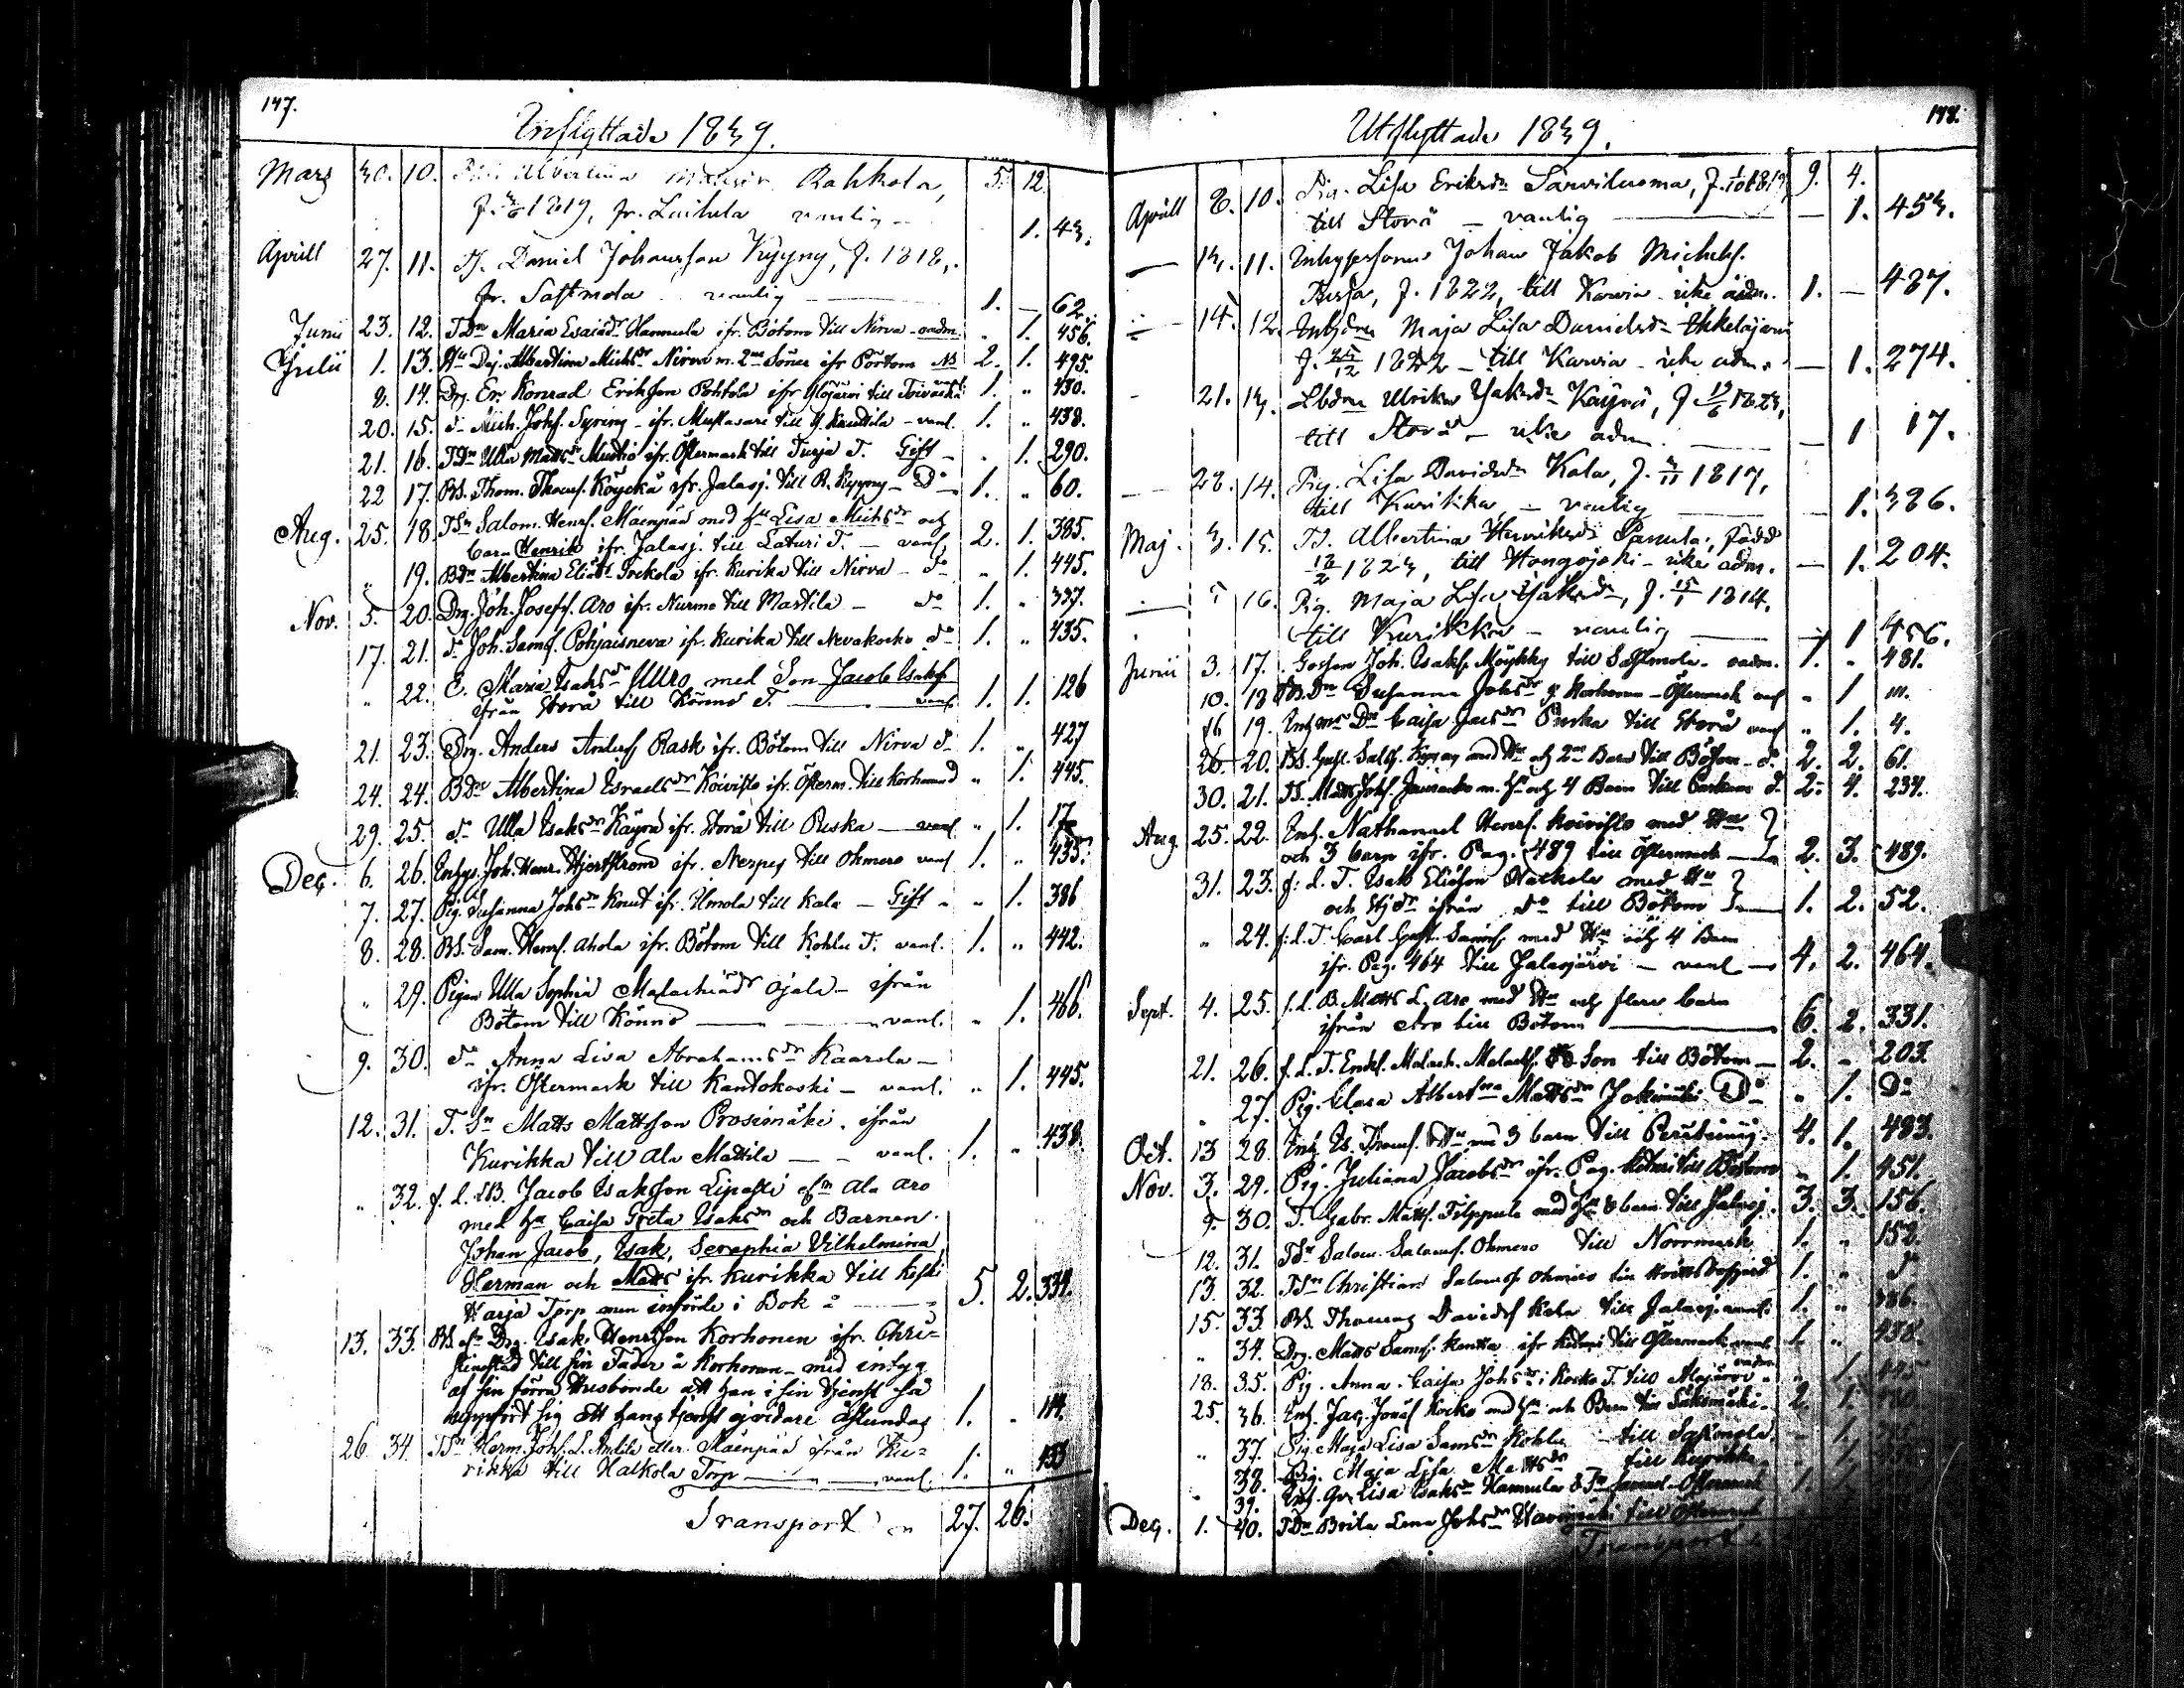 147.
Inflyttade 1839.
Mars 30. 10. Albertina Rahkola, 5. 12.
f. 1819, fr. Laihela vanlig 1. 43.
Aprill 27. 11. Daniel Johansson Kyyny, f. 1818,
fr. Sastmola vanlig 1. — 62.
Junii 23. 12. TDr Maria Esaiädr Hannula ifr. Bötom till Nirva - oadm. „ 1. 456.
Julii 1. 13. Albertina Michsdr Nirva m. 2ne Söner ifr Pörtom 2. 1. 495.
8. 14. Drg. Er. Konrad Eriksson Pohtola ifr Ylöjärvi till 1. „ 430.
20. 15. do Mich. Johs. Syring - ifr. Mustasari till Y. Knuutila - vanl. 1. „ 438.
21. 16. TDr Ulla Mattsdr Mustio ifr. Östermark till Turja T. Gift - „ 1. 290.
22 17. BS. Thom. Thomss. Köyckä ifr. Jalasj. till R. Kyyny - Do 1. „ 60.
Aug. 25. 18. TSn Salom. Henrs. Mäenpää med hu Lisa Michsdr och
barn Henrik ifr. Jalasj. till Laturi T. — vanl. 2. 1. 385.
„ 19. BDr Albertina Eliædr Irekola ifr. Kurika till Nirva - do „ 1. 445.
Nov. 5. 20. Drg. Joh. Josefs. Aro ifr. Nurmo till Mattila — do 1. „ 337.
17. 21. do Joh. Sams. Pohjaisneva ifr. Kurika till Nevakoski do 1. „ 435.
„ 22. E. Maria Isaksdr Uuro med Son Jacob Isaksson
från Storå till Könnö T. — vanl. 1. 1. 126
21. 23. Drg. Anders Anders Rask ifr. Bötom till Nirva do 1. „ 427
24. 24. BDr Albertina Israelsdr Koivisto ifr. Österm. till Korhonen do „ 1. 445.
29. 25. do Ulla Isaksdr Käyrä ifr. Storå till Puska — vanl „ 1. 17
Dec. 6. 26. Inhys. Joh. Henr. Hjertström ifr. Nerpes till Ohmero vanl 1. „ 435.
7. 27. Pig. Susanna Johsdr Knut ifr. Ilmola till Kala — Gift - „ 1. 386
8. 28. BS. Sam. Henrs. Ahola ifr. Bötom till Kohlu T. vanl. 1. „ 442.
„ 29. Pigan Ulla Sophia Malachiædr Ojala - ifrån
Bötom till Könnö — vanl. „ 1. 466.
9. 30. do Anna Lisa Abrahamsdr Kaarela —
ifr. Östermark till Kantokoski — vanl. „ 1. 445.
12. 31. T. Sn Matts Mattsson Prosimäki. ifrån
Kurikka till Ala Mattila — vanl. 1. „ 438.
„ 32. f. d. LB. Jacob Isaksson Lipasti fm Ala Aro
med hu Caisa Greta Isaksdr och Barnen
Johan Jacob, Isak, Seraphia Vilhelmina,
Herman och Matts ifr. Kurikka till Koski
Harja Torp men införde i Bok å — 5. 2. 334.
13. 33. BS. fd Drg. Isak Henrsson Korhonen ifr. Chri-
stinestad till sin Fader å Korhonen - med intyg
af sin förra Husbonde att han i sin tjenst så
uppfört sig att hans tjenst ej vidare åstundas 1. „ 114.
26. 34. TSn Herm. Johs. L. Antila eller Mäenpää ifrån Ku-
rikka till Halkola Torp — vanl. 1. „ 133
Transport 27. 26.
148.
Utflyttade 1839.
9. 4.
Aprill 8. 10. Pig. Lisa Eriksdr Sarviluoma, f. 1819,
till Storå — vanlig — 1. 453.
— 13. 11. Inhysesonen Johan Jakob Michels.
Turja, f. 1822, till Karvia - icke adm. 1. — 487.
— 14. 12. Inhysdn Maja Lisa Danielsdr Ikkeläjärvi
f. 25/12 1822 — till Karvia - icke adm. — 1. 274.
- 21. 13. Lbdn Ulrika Isaksdr Käyrä, f. 19/6 1823,
till Storå — icke adm. — 1 17.
— 28. 14. Pig. Lisa Davidsdr Kala, f. 1817,
till Kurikka — vanlig — 1. 386.
Maj. 3. 15. TD. Albertina Henriksdr Panula, född
12/2 1823, till Hongojoki - icke adm. — 1. 204.
— 5 16. Pig. Maja Lisa Isaksdr, f. 15/1 1814,
till Kurikka — vanlig — 1 456.
Junii 3. 17. Gossen Joh. Isaks. Möykky till Sastmola - oadm. 1. „ 481.
10. 18 BDr Susanna Johsdr Korhonen - Östermark vanl „ 1 111.
16 19. Inhyses Dr Caisa Jacsdr Puska till Storå vanl „ 1. 4.
26. 20. BS. Gust. Salf. Kyyny med Hu och 2ne Barn till Bötom - do. 2. 2. 61.
30. 21. TS. Matts Johs. m. hu och 4 Barn till Parkano do 2. 4. 234.
Aug 25. 22. Inh. Nathanael Henrs. Koivisto med Hu
och 3 barn ifr. Pag. 489 till Östermark — 2. 3. 489.
31. 23. f. d. T. Isak Eliæson Halkola med Hu
och Stjdr ifrån do till Bötom 1. 2. 52.
„ 24. f. d. T. Carl Gust. Sams. med Hu och 4 Barn
ifr. Pag. 464 till Jalasjärvi — vanl — 4. 2. 464.
Sept. 4. 25. f. d. B. Matts L. Aro med Hu och flere barn
ifrån Aro till Bötom — 6. 2. 331.
21. 26. f. d. T. Enkl. Malach. Malachs. & Son till Bötom — 2. „ 203.
„ 27. Pig. Clara Albertina Mattsdr Jokimäki Do „ 1. Do
Oct. 13 28. Inh. Is. Thoms. Hu med 3 barn till 4. 1. 483.
Nov. 3. 29. Pig. Juliana Jacobsdr ifr. Pag. till Bötom „ 1. 451.
9. 30. T. Gabr. Matts. Filppula med hu & barn till Jalasj. 3. 3. 156.
12. 31. TSn Salom. Saloms. Ohmero till Norrmark 1. „ 152.
13. 32. TSn Christian Saloms Ohmero till 1. „ do
15. 33. BS. Thomas Davids Kala till Jalasj. vanl. 1. „ 386.
„ 34. Drg. Matts Sams. Kantta ifr till Östermark vanl 1. „ 438.
18. 35. Pig. Anna Caisa Johsdr i Koski T. till oadm. „ 1. 445
25. 36. Inh. Jac. Jonäs Kocko med hu och Barn till 2. 1.
„ 37. Pig. Maja Lisa Samsdr Kohlu — till Sastmola. 1.
„ 38. Pig. Maja Lisa Mattsdr till Kurikka 1.
39. Inh. Gr. Lisa Isaksdr Hannula & Östermark 1.
Dec. 1. 40. TDr Brita Lena Johsdr till Östermark
Transport